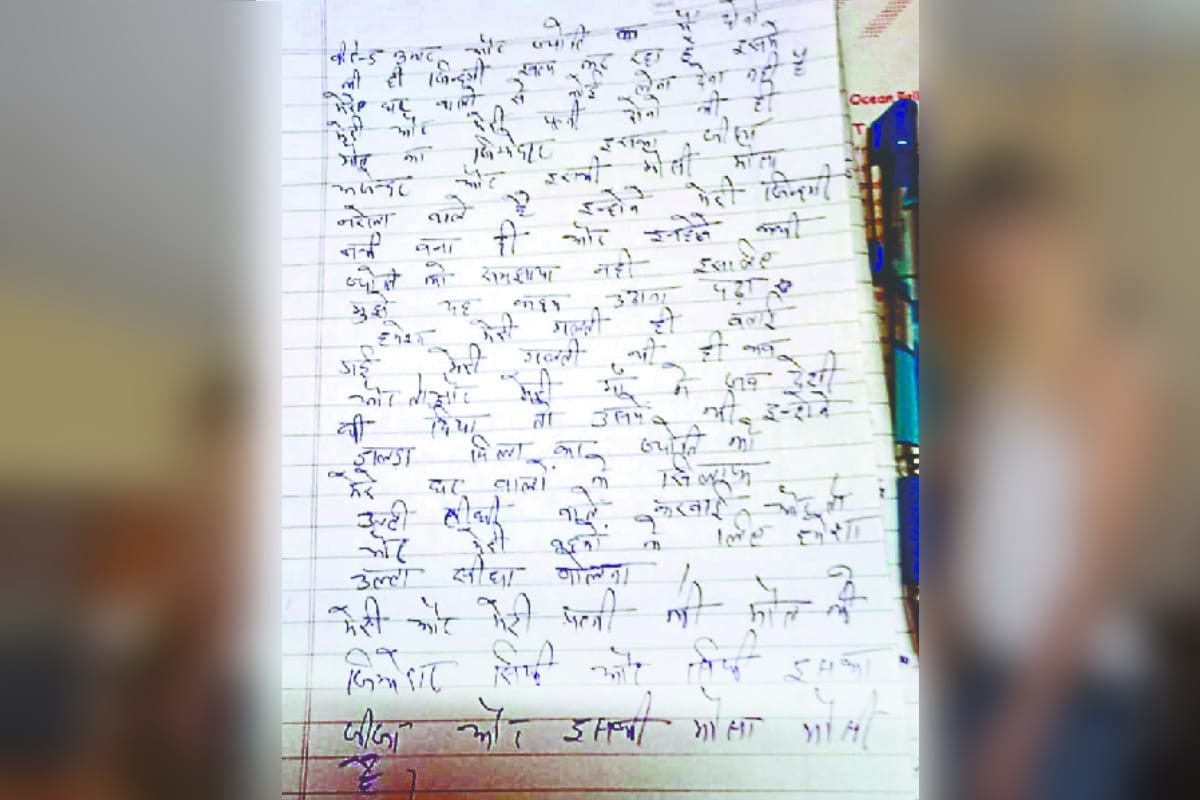 और ज्योति का मै दोनो
की ही जिन्दगी खत्म कर रहा हूँ इसमे
मेरे घर वालो से कोई लेना देना नही है
मेरी और मेरी पत्नी दोनो की ही
मौत का जिम्मेदार इसका जीजा
और इसकी मौसी मौसा
नरेला वाले है इन्होने मेरी जिन्दगी
नर्क बना दी और इन्होने कभी
ज्योति को समझाया नही इसलिए
मुझे यह कदम उठाना पढ़ा
हमेशा मेरी गलती ही बताई
गई मेरी गलती भी ही
और तो और मेरी माँ ने जब देशी
घी दिया तो उसमे भी इन्होने
डालडा मिला का ज्योति को
मेरे घर वालो के खिलाफ
उल्टी सीधी बाते करवाई
और मेरी बहनो के लिए हमेशा
उल्टा सीधा बोलना
मेरी और मेरी पत्नी की मौत के
जिम्मेदार सिर्फ और सिर्फ इसका
जीजा और इसकी मौसा मौसी
है।
Ocean